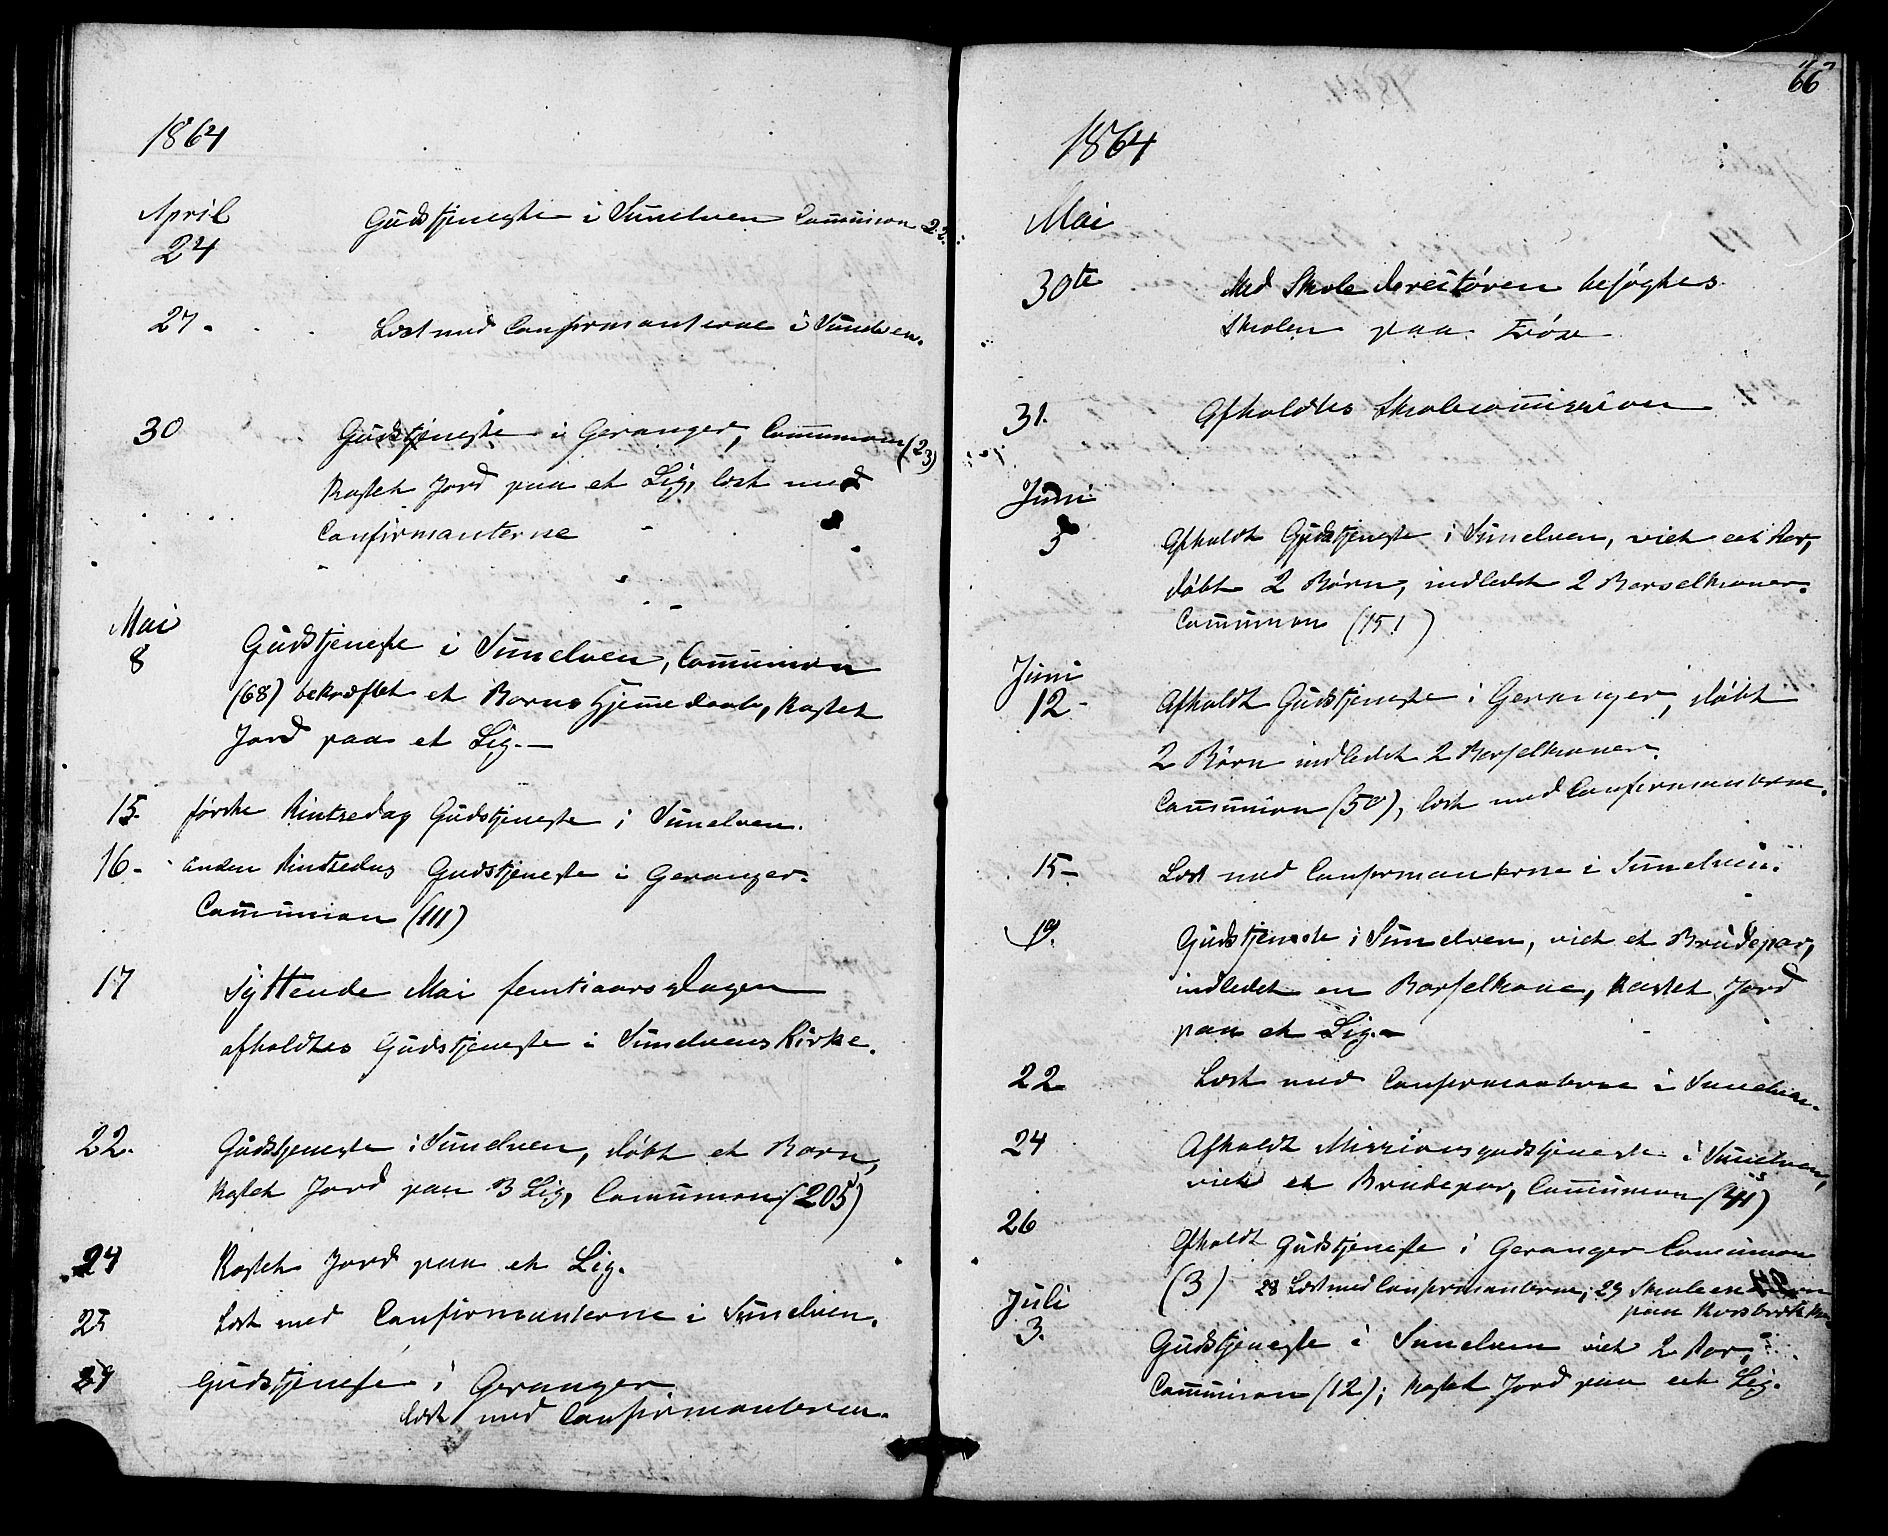 1864
April
24 Gudstjeneste i Sunelven Communion 22.
27. Læst med Confirmanterne i Sunelven.
30 Gudstjeneste i Geranger, Communion (23)
Kastet Jord paa et Lig, læst med
Confirmanterne
Mai
8 Gudstjeneste i Sunelven, Communion
(68) bekræftet et Barns Hjemmedaab, Kastet
Jord paa et Lig.—
15. første Pintsedag Gudstjeneste i Sunelven.
16- anden Pintsedag Gudstjeneste i Geranger.
Communion (111)
17 Syttende Mai femtiaarsdagen
afholdtes Gudstjeneste i Sunelvens Kirke.
22. Gudstjeneste i Sunelven, døbt et Barn,
Kastet Jord paa 3 Lig, Communion (205)
24 Kastet Jord paa et Lig.
25 Læst med Confirmanterne i Sunelven.
29 Gudstjeneste i Geranger
læst med Confirmanterne.
66
1864
Mai
30te Med Skoledirectøren besøgtes
Skolen paa
31. Afholdtes Skolecommission
Juni
5 Afholdt Gudstjeneste i Sunelven, viet eet Par,
døbt 2 Børn, indledet 2 Barselkoner.
Communion (151)
Juni
12- Afholdt Gudstjeneste i Geranger, døbt
2 Børn indledet 2 Barselkoner.
Communion (50), læst med Confirmanterne.
15- Læst med Confirmanterne i Sunelven.
19. Gudstjeneste i Sunelven, viet et Brudepar,
indledet en Barselkone, Kastet Jord
paa et Lig.-
22 Læst med Confirmanterne i Sunelven.
24 Afholdt Missionsgudstjeneste i Sunelven,
viet et Brudepar, Communion
26 Afholdt Gudstjeneste i Geranger Communion
(3) 28 Læst med Confirmanterne; 29
paa
Juli
3. Gudstjeneste i Sunelven viet 2 Par,
Communion (12); Kastet Jord paa eet Lig.